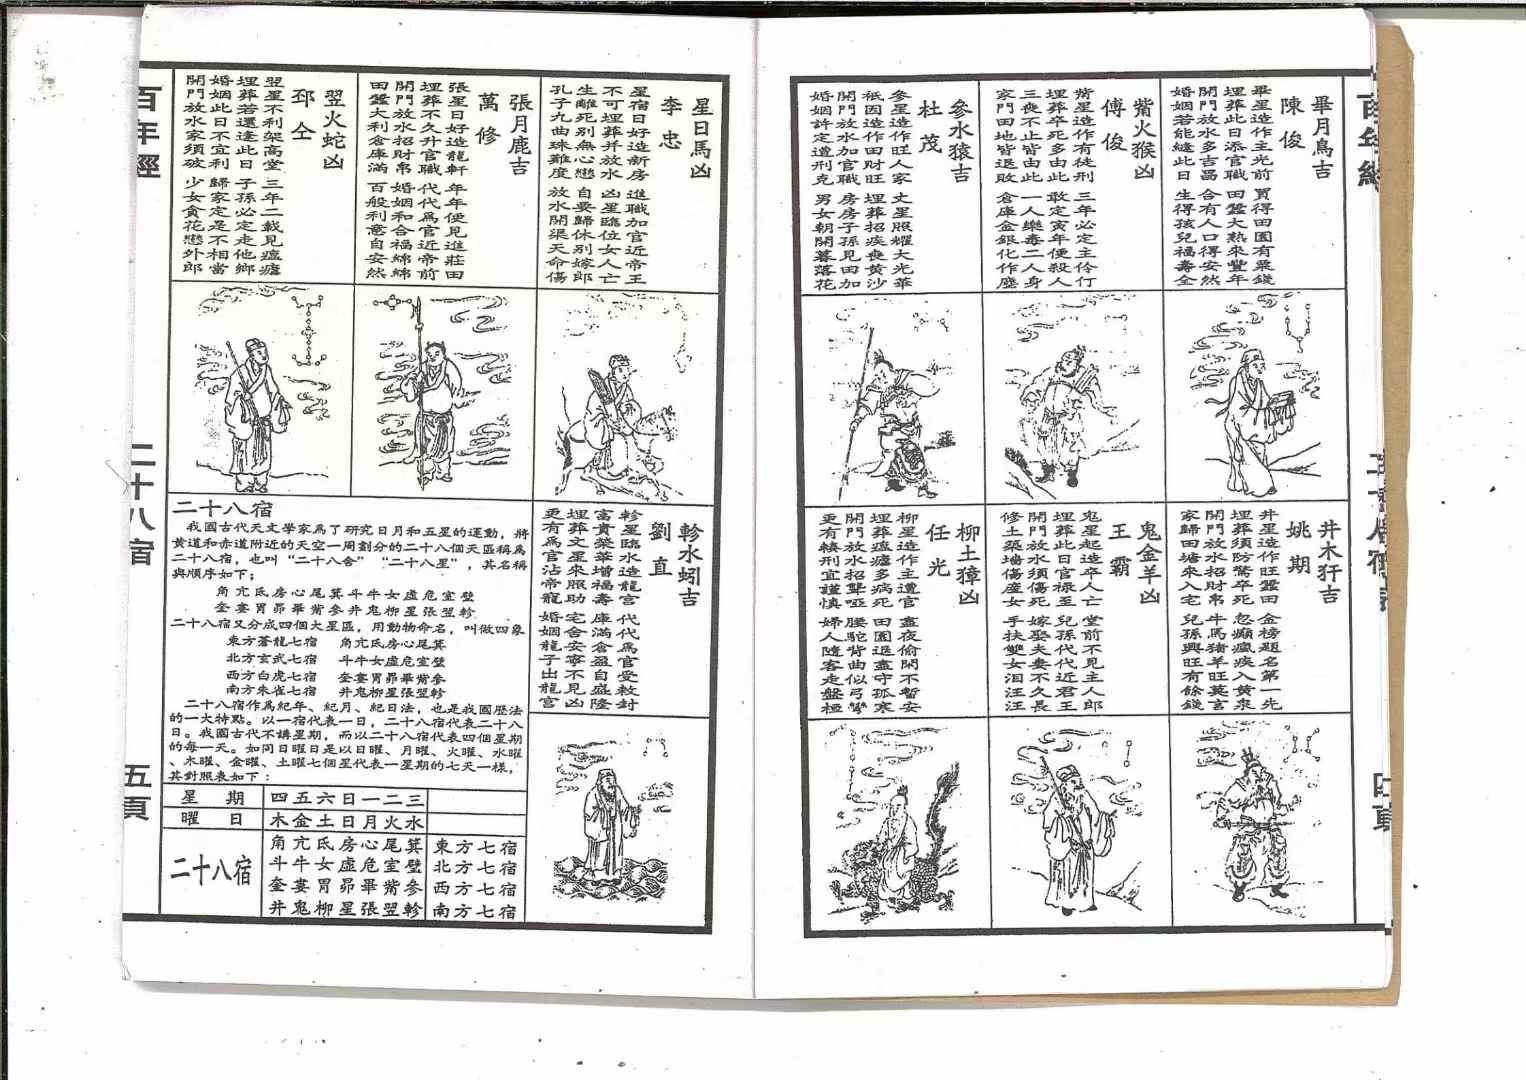 百年經
畢月烏吉
陳俊
畢星造作主光前 買得田園有粟錢
埋葬此日添官職 田蠶大熱來豐年
開門放水多吉昌 合有人口得安然
婚姻若能縫此日 生得孩兒福壽全
觜火猴凶
傅俊
觜星造作有徒刑 三年必定主伶仃
埋葬卒死多由此 敢定寅年便殺人
三喪不止皆由此 一人藥毒二人身
家門田地皆退敗 倉庫金銀化作塵
參水猿吉
杜茂
參星造作旺人家 丈星照耀大光華
祇因造作田財旺 埋葬招疾喪黃沙
開門放水加官職 房房子孫見田加
婚姻許定遭刑克 男女朝開暮落花
井木犴吉
姚期
井星造作旺蠶田 金榜題名第一先
埋葬須防驚卒死 忽癲瘋疾入黃泉
開門放水招財帛 牛馬豬羊旺莫言
家歸田塘來入宅 兒孫興旺有餘錢
鬼金羊凶
王霸
鬼星起造卒人亡 堂前不見主人郎
埋葬此日官祿至 兒孫代代近君王
開門放水須傷死 嫁娶夫妻不久長
修土築墻傷產女 手扶雙女泪汪汪
柳土獐凶
任光
柳星造作主遭官 晝夜偷閑不暫安
埋葬瘟瘧多病死 田園退盡守孤寒
開門放水招聾啞 腰駝背曲似弓彎
更有轃刑宜謹慎 婦人隨客走盤桓
星日馬凶
李忠
星宿日好造新房 進職加官近帝王
不可埋葬并放水 凶星臨位女人亡
生離死別無心戀 自要歸休別嫁郎
孔子九曲珠難度 放水開渠天命傷
張月鹿吉
萬修
張星日好造龍軒 年年便見進莊田
埋葬不久升官職 代代爲官近帝前
開門放水招財帛 婚姻和合福綿綿
田蠶大利倉庫滿 百般利意自安然
翌火蛇凶
邳仝
翌星不利架高堂 三年二載見瘟瘧
埋葬若還逢此日 子孫必定走他鄉
婚姻此日不宜利 歸家定是不相當
開門放水家須破 少女貪花戀外郎
軫水蚓吉
劉直
軫星臨水造龍宮 代代爲官受敕封
富貴榮華增福壽 庫滿倉盈自盛隆
埋葬文星來照助 宅舍安寧不見凶
更有爲官沾帝寵 婚姻龍子出龍宮
二十八宿
我國古代天文學家爲了研究日月和五星的運動，將
黃道和赤道附近的天空一周劃分的二十八個天區稱爲
二十八宿，也叫“二十八舍”“二十八星”，其名稱
與順序如下；
角亢氐房心尾箕斗牛女虛危室壁
奎婁胃昴畢觜參井鬼柳星張翌軫
二十八宿又分成四個大星區，用動物命名，叫做四象
東方蒼龍七宿 角亢氐房心尾箕
北方玄武七宿 斗牛女虛危室壁
西方白虎七宿 奎婁胃昴畢觜參
南方朱雀七宿 井鬼柳星張翌軫
二十八宿作爲紀年、紀月、紀日法，也是我國歷法
的一大特點。以一宿代表一日，二十八宿代表二十八
日。我國古代不講星期，而以二十八宿代表四個星期
的每一天。如同日曜日是以日曜、月曜、火曜、水曜
、木曜、金曜、土曜七個星代表一星期的七天一樣，
其對照表如下：
星期 四五六日一二三
曜日 木金土日月火水
二十八宿
角亢氐房心尾箕 東方七宿
斗牛女虛危室壁 北方七宿
奎婁胃昴畢觜參 西方七宿
井鬼柳星張翌軫 南方七宿
百年經
二十八宿
五頁